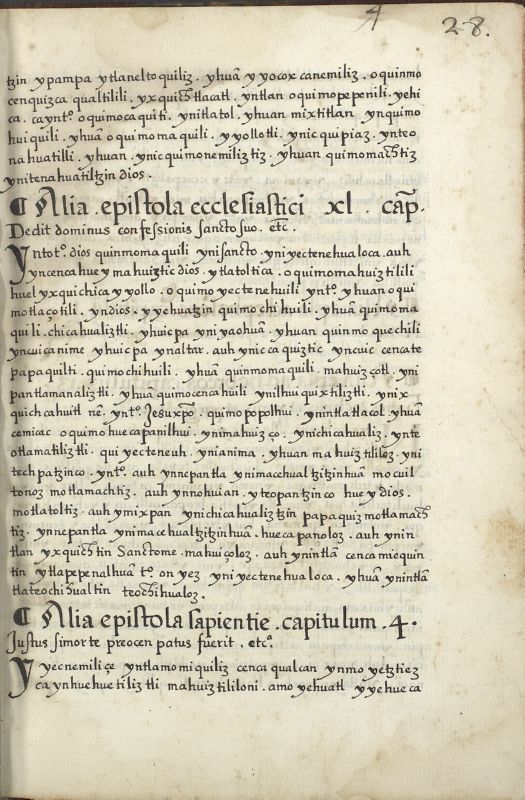 4 28.
tzin ypampa ytlaneltoquiliz. yhuā yyocoxcanemiliz. oquinmo
cenquizca qualtilili. yxquich tlacatl. yntlan oquimopepenili. yehi
ca. ca ynt.º oquimocaquiti. ynitlatol. yhuan mixtitlan ynquimo
huiquili. yhuā oquimomaquili. yyollotli. ynic quipiaz. ynteo
nahuatilli. yhuan. ynic quimonemiliztiz. yhuan quimomachtiz
ynitenahuatiltzin dios.
¶ Alia. epistola ecclesiastici xl. cap̄.
Dedit dominus confessionis sancto suo. etc̄.
Yntot.º dios quinmomaquili ynisancto. yniyectenehualoca. auh
yncencahuey mahuiztic dios. ytlatoltica. oquimomahuiztilili
huel yxquichica yyollo. oquimoyectenehuili ynt.º yhuan oqui
motlaçotili. yndios. yyehuatzin quimochihuili. yhuā quimoma
quili. chicahualiztli. yhuicpa yniyaohuā. yhuan quinmoquechili
yncuicanime yhuicpa ynaltar. auh ynic ca quiztic yncuic cencate
papaquilti. quimochihuili. yhuā quinmomaquili. mahuizçotl. yni
pantlamanaliztli. yhuā quimocencahuili ynilhuiquixtiliztli. ynix
quichcahuitl nē. ynt.º Jesuxp̄o. quimopopolhui. ynintlatlacol yhuā
cemicac oquimohuecapanilhui. ynimahuizço. ynichicahualiz. ynte
otlamatiliztli. qui yecteneuh. ynianima. yhuan mahuiztililoz. yni
techpatzinco. ynt.º. auh ynnepantla ynimacehualtzitzinhuā mocuil
tonoz motlamachtiz. auh ynnohuian. yteopantzinco huey dios.
motlatoltiz. auh ymixpan ynichicahualiztzin papaquiz motlamach
tiz. ynnepantla ynimacehualtzitzinhuā. huecapanoloz. auh ynin
tlan yxquichtin Sanctome. mahuiçoloz. auh ynintlā cenca miequin
tin ytlapepenalhuā t.º on yez yniyectenehualoca. yhuā ynintlā
tlateochihualtin teochihualoz.
¶ Alia epistola sapientie. capitulum. 4.
Justus si morte preocenpatus fuerit. etc.ª
Yyecnemiliçe yntlamomiquiliz cenca qualcan ynmoyetztiez
ca ynhuehuetiliztli mahuiztililoni. amo yehuatl yyehueca